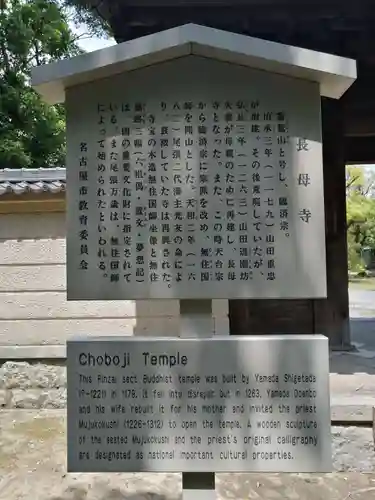 長母寺
霊鷲山と号し、臨済宗。
治承三年(一一七九)山田重忠
が創建。その後衰頽していたが、
弘長三年(一二六三)山田道円坊
夫妻が母親のため再建し、長母
寺となった。また、この時天台宗
から臨済宗に宗派を改め、無住国
師を開山とした。天和二年(一六
八二)尾張二代藩主光友の命によ
り、衰頽していた寺は再興された。
寺宝の木造無住国師坐像と無住
国の重要文化財に指定されて
いる。また尾張万歳は、無住国師
によって始められたといわれる。
名古屋市教育委員会
Choboji Temple
This Rinzai sect Buddhist temple was built by Yamada Shigetada
(?-1221) in 1179. It fell into disrepair but in 1263, Yamada Doenbo
and his wife rebuilt it for his mother and invited the priest
Mujukokushi (1226-1312) to open the temple. A wooden sculpture
of the seated Mujukokushi and the priest's original calligraphy
are designated as national important cultural properties.